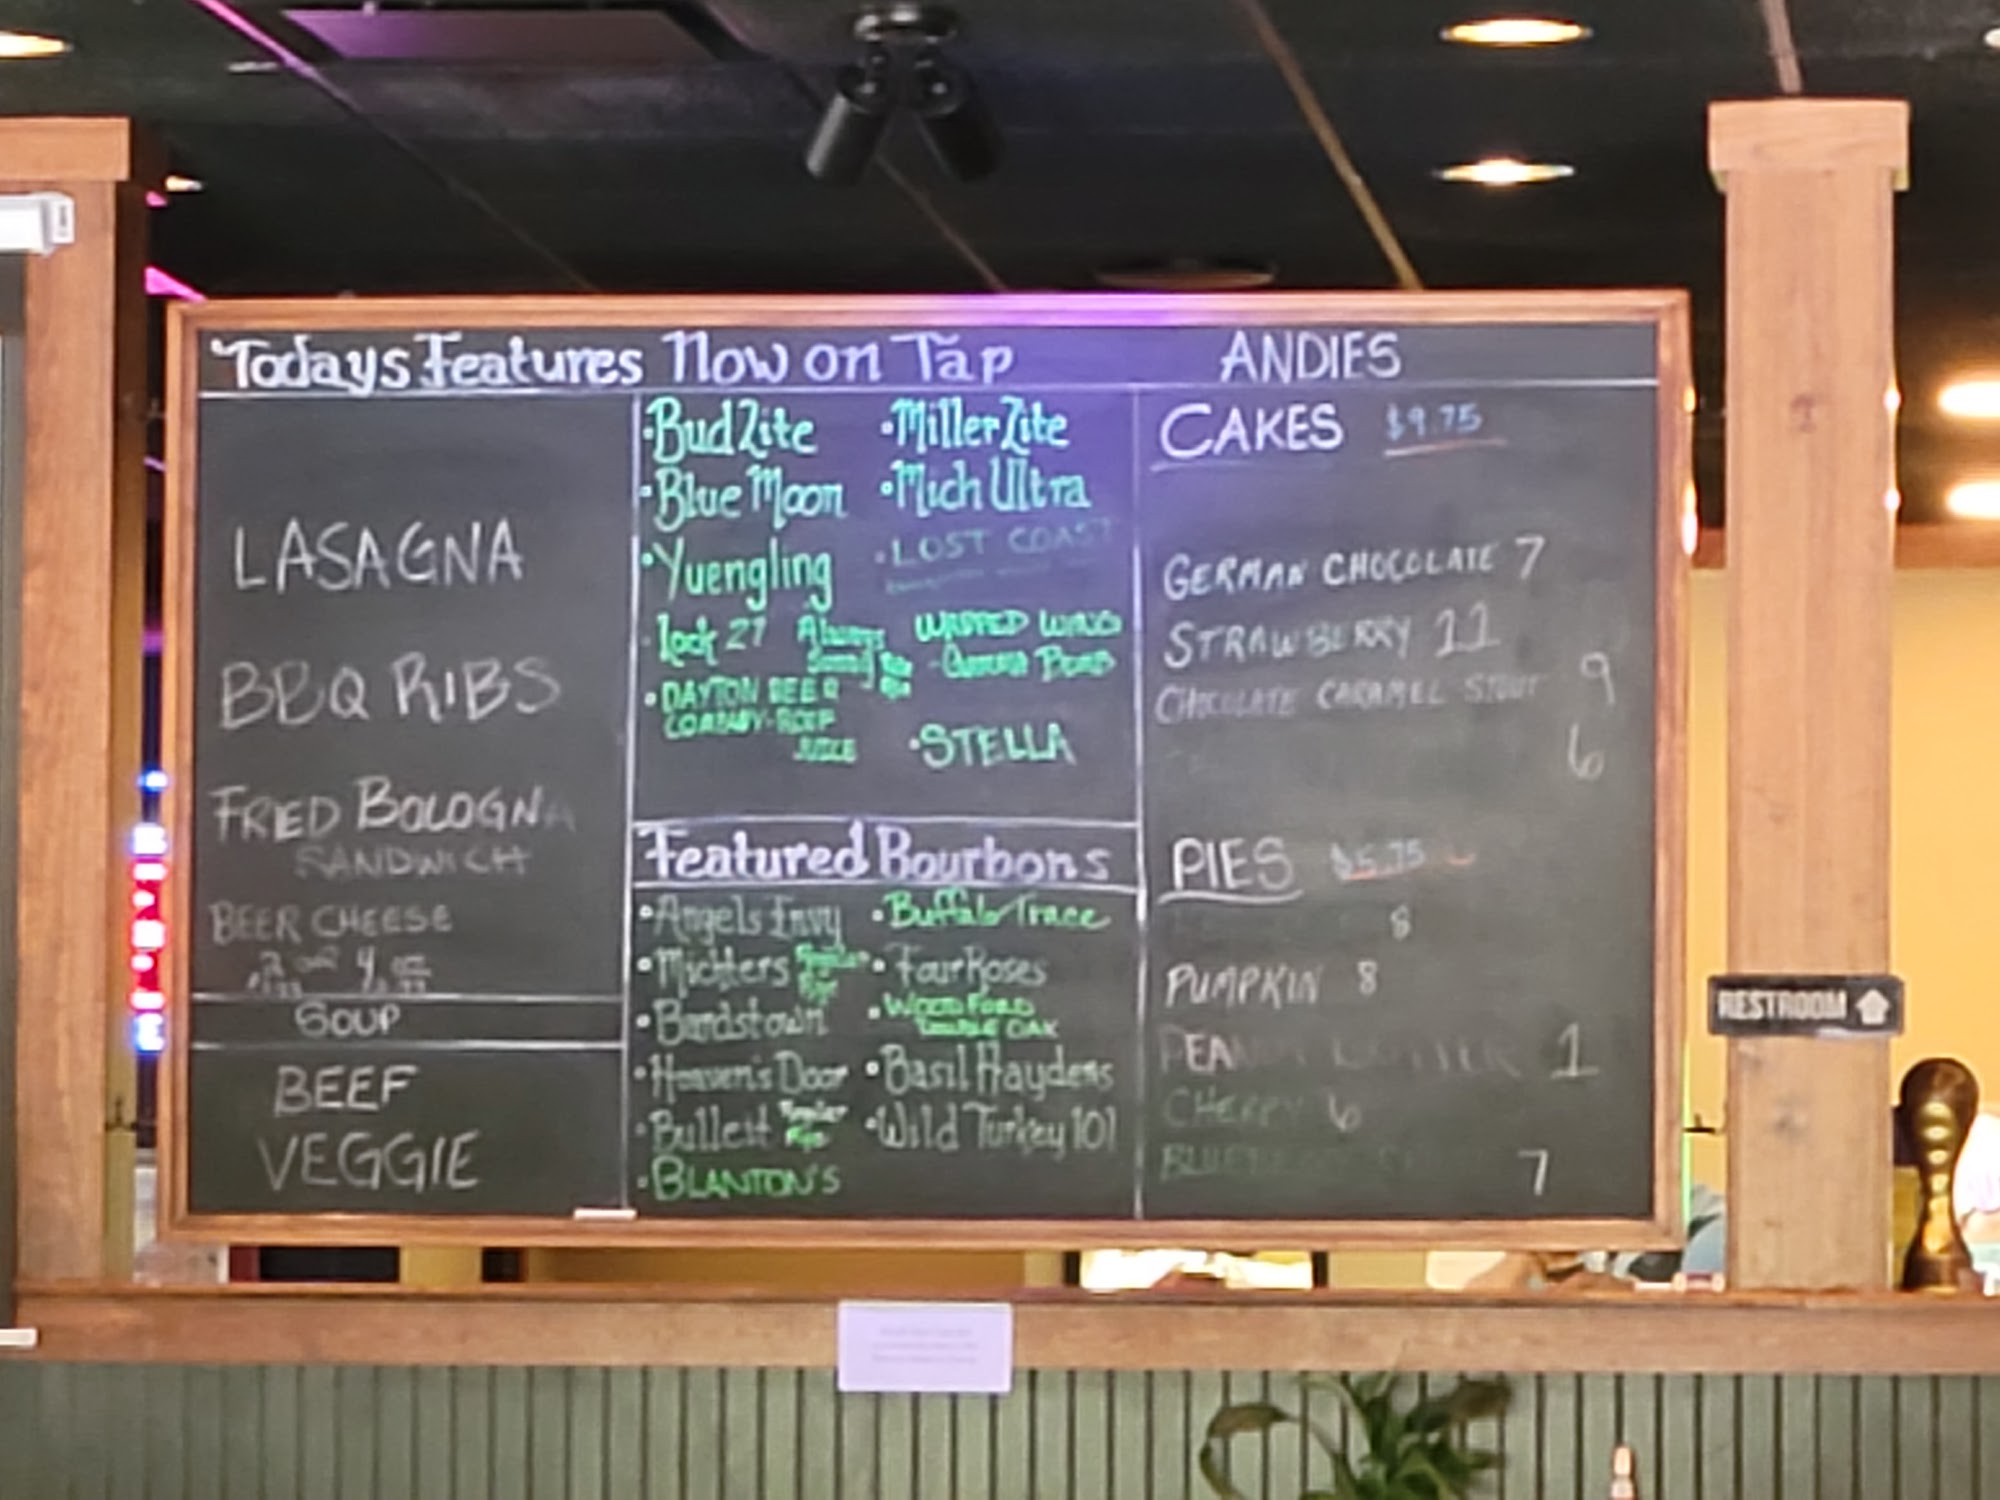 Todays Features
LASAGNA
BBQ RIBS
FRIED BOLOGNA
SANDWICH
BEER CHEESE
SOUP
BEEF
VEGGIE
Now on Tap
•Bud Lite
•Blue Moon
•Yuengling
•Lock 27 Always
Sunny
•DAYTON BEER
COMPANY-
JUICE
•Miller Lite
•Mich Ultra
•LOST COAST
WARPED WING
-GAMMA BOMB
•STELLA
Featured Bourbons
•Angels Envy
•Michters Single Rye
•Bardstown
•Heaven's Door
•Bullett
•BLANTON'S
•Buffalo Trace
•Four Roses
•WOODFORD
DOUBLE OAK
•Basil Haydens
•Wild Turkey 101
ANDIES
CAKES $9.75
GERMAN CHOCOLATE 7
STRAWBERRY 11
CHOCOLATE CARAMEL STOUT 9
6
PIES $5.75
8
PUMPKIN 8
PEANUT BUTTER 1
CHERRY 6
7
RESTROOM